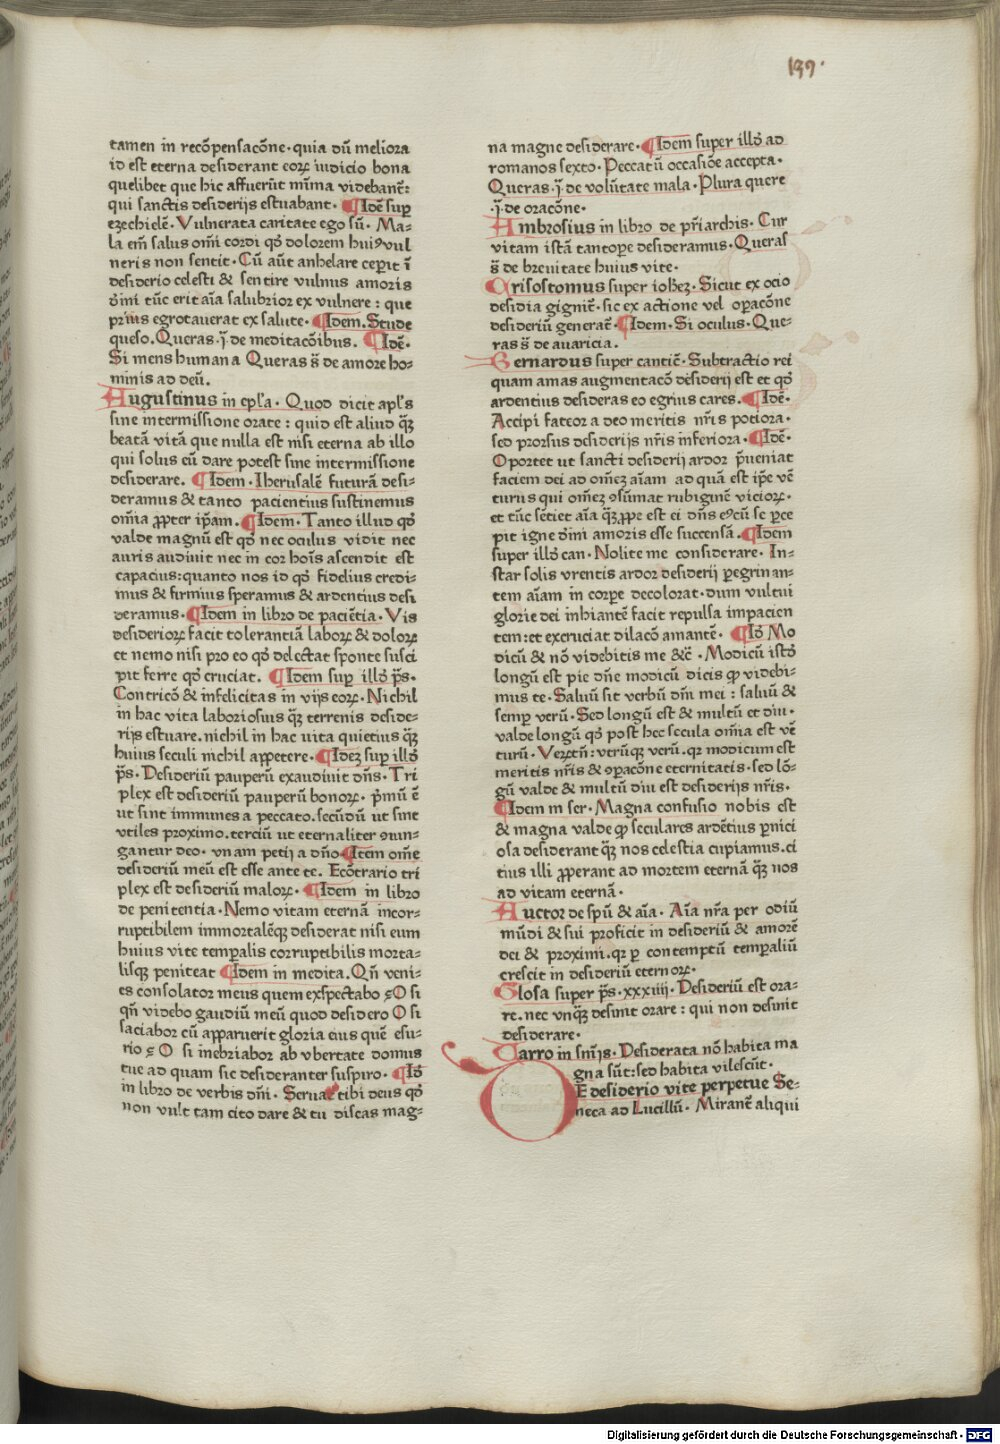 139·
tamen in recōpensacōne·quia dū meliora
id est eterna desiderant eoꝝ iudicio bona
quelibet que hic affuerūt mīma videbant̄:
qui sanctis desiderijs estuabant· ¶Idē suꝑ
ezechielē·Vulnerata caritate ego sū· Ma-
la em̄ salus om̄i cordi qđ dolorem huiꝯ vul
neris non sentit·Cū aūt anhelare ceꝑit ī
desiderio celesti & sentire vulnus amoris
dīni tūc erit aīa salubrior ex vulnere : que
prīus egrotauerat ex salute· ¶Idem. Stude
queso. Queras ·j̄· de meditacōibus. ¶Idē·
Si mens humana Queras s̄ de amore ho-
minis ad deū.
Augustinus in epl'a · Quod dicit apl's
sine intermissione orate : quid est aliud qꝫ
beatā vitā que nulla est nisi eterna ab illo
qui solus eū dare potest sine intermissione
desiderare. ¶Idem·Iherusalē futurā desi-
deramus & tanto pacientius sustinemus
om̄ia ꝓpter ip̄am. ¶Idem·Tanto illud qđ
valde magnū est qđ nec oculus vidit nec
auris audiuit nec in cor hoīs ascendit est
capacius:quanto nos id qđ fidelius credi-
mus & firmius speramus & ardentius desi
deramus· ¶Idem in libro de paciētia·Vis
desiderioꝝ facit tolerantiā laboꝝ & doloꝝ
et nemo nisi pro eo qđ delectat sponte susci
pit ferre qđ cruciat. ¶Idem suꝑ illđ p̄s·
Contricō & infelicitas in vijs eoꝝ·Nichil
in hac vita laboriosius qꝫ terrenis deside-
rijs estuare. nichil in hac vita quietius qꝫ
huius seculi nichil appetere· ¶Ideꝫ suꝑ illđ
p̄s·Desideriū pauperū exaudiuit dn̄s·Tri
plex est desideriū pauperū bonoꝝ· pͥmū ē
ut sint immunes a peccato. secūdū ut sint
vtiles proximo. terciū ut eternaliter ꝯiun-
gantur deo· vnam petij a dn̄o ¶Item om̄e
desideriū meū est esse ante te. Ecōtrario tri
plex est desideriū maloꝝ· ¶Idem in libro
de penitentia·Nemo vitam eternā incor-
ruptibilem immortalēqꝫ desiderat nisi eum
huius vite temꝑalis corruptibilis morta-
lisqꝫ peniteat ¶Idem in medita. Qn̄ veni-
es consolator meus quem exspectabo ꝯ O si
qn̄ videbo gaudiū meū quod desidero O si
saciabor cū apparuerit gloria eius quē esu-
rio ꝯ O si inebriabor ab vbertate domus
tue ad quam sic desideranter suspiro· ¶Iđ
in libro de verbis dn̄i· Seruat tibi deus qđ
non vult tam cito dare & tu discas mag-
na magne desiderare· ¶Idem super illđ ad
romanos sexto·Peccatū occasiōe accepta·
Queras ·j̄· de volūtate mala·Plura quere
·j̄· de oracōne·
Ambrosius in libro de prīarchis· Cur
vitam istā tantoꝑe desideramus·Queras
s̄ de breuitate huius vite·
Crisostomus super iohez·Sicut ex ocio
desidia gignit̄·sic ex actione vel oꝑacōne
desideriū generat̄· ¶Idem·Si oculus·Que-
ras s̄ de auaricia.
Bernardus super cantic̄·Subtractio rei
quam amas augmentacō dēsiderij est et qđ
ardentius desideras eo egrius cares. ¶Idē·
Accipi fateor a deo meritis nr̄is potiora·
sed prorsus desiderijs nr̄is inferiora· ¶Idē·
Oportet ut sancti desiderij ardor p̄ueniat
faciem dei ad om̄eꝫ aīam ad quā est ip̄e vē
turus qui om̄eꝫ ꝯsūmat rubiginē vicioꝝ·
et tūc sētiet aīa qꝫ ꝓpe est ei dn̄s ꝯcū se ꝑce
pit igne dīni amoris esse succensā. ¶Idem
super illđ can·Nolite me considerare· In-
star solis vrentis ardor desiderij peregrinan-
tem aīam in corpe decolorat·dum vultui
glorie dei inhiantē facit repulsa impacien
tem:et excruciat dilacō amantē· ¶Iđ Mo
dicū & nō videbitis me &c̄·Modicū istđ
longū est pie dn̄e modicū dicis ꝙ videbi-
mus te·Saluū sit verbū dn̄i mei : saluū &
semꝑ verū·Sed longū est & multū et diu·
valde longū qđ post hec secula om̄ia est vē
turū·Veꝝtn̄: vtrūqꝫ verū·qꝛ modicum est
meritis nr̄is & ꝯꝑacōne eternitatis·sed lō-
gū valde & multū diu est desiderijs nr̄is·
¶Idem in ser·Magna confusio nobis est
& magna valde ꝙ seculares ardētius ꝑnici
osa desiderant qꝫ nos celestia cupiamus. ci
tius illi ꝓperant ad mortem eternā qꝫ nos
ad vitam eternā·
Auctor de spū & aīa· Aīa nr̄a per odiū
mūdi & sui proficit in desideriū & amorē
dei & proximi. qꝛ ꝑ contemptū temꝑaliū
crescit in desideriū eternoꝝ·
Glosa super p̄s·xxxiiij·Desideriū est ora-
re. nec vnqꝫ desinit orare : qui non desinit
desiderare·
Varro in snīis·Desiderata nō habita ma
gna sūt:sed habita vilescūt·
DE desiderio vite perpetue Se-
neca ad Lucillū· Mirant̄ aliqui
Digitalisierung gefördert durch die Deutsche Forschungsgemeinschaft · DFG